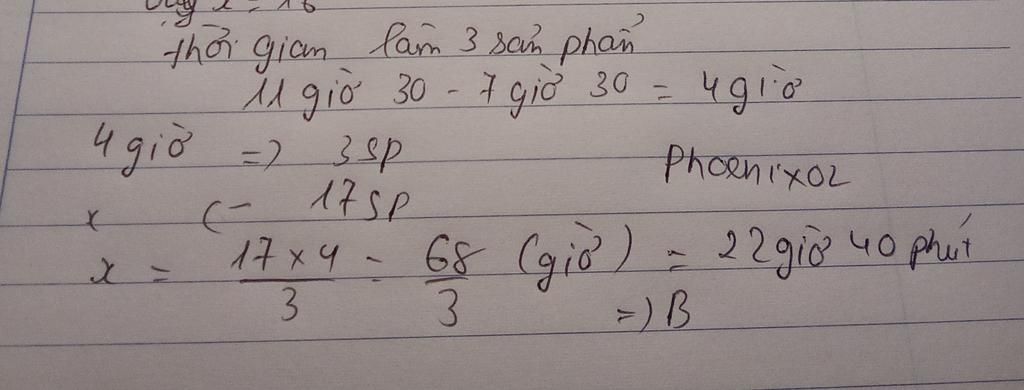 x = 16
thời gian làm 3 sản phẩn
11 giờ 30 - 7 giờ 30 = 4 giờ
4 giờ => 3 sp
Phoenixoz
x <- 17 sp
x = 17 x 4 / 3 = 68 / 3 (giờ) = 22 giờ 40 phút
=> B